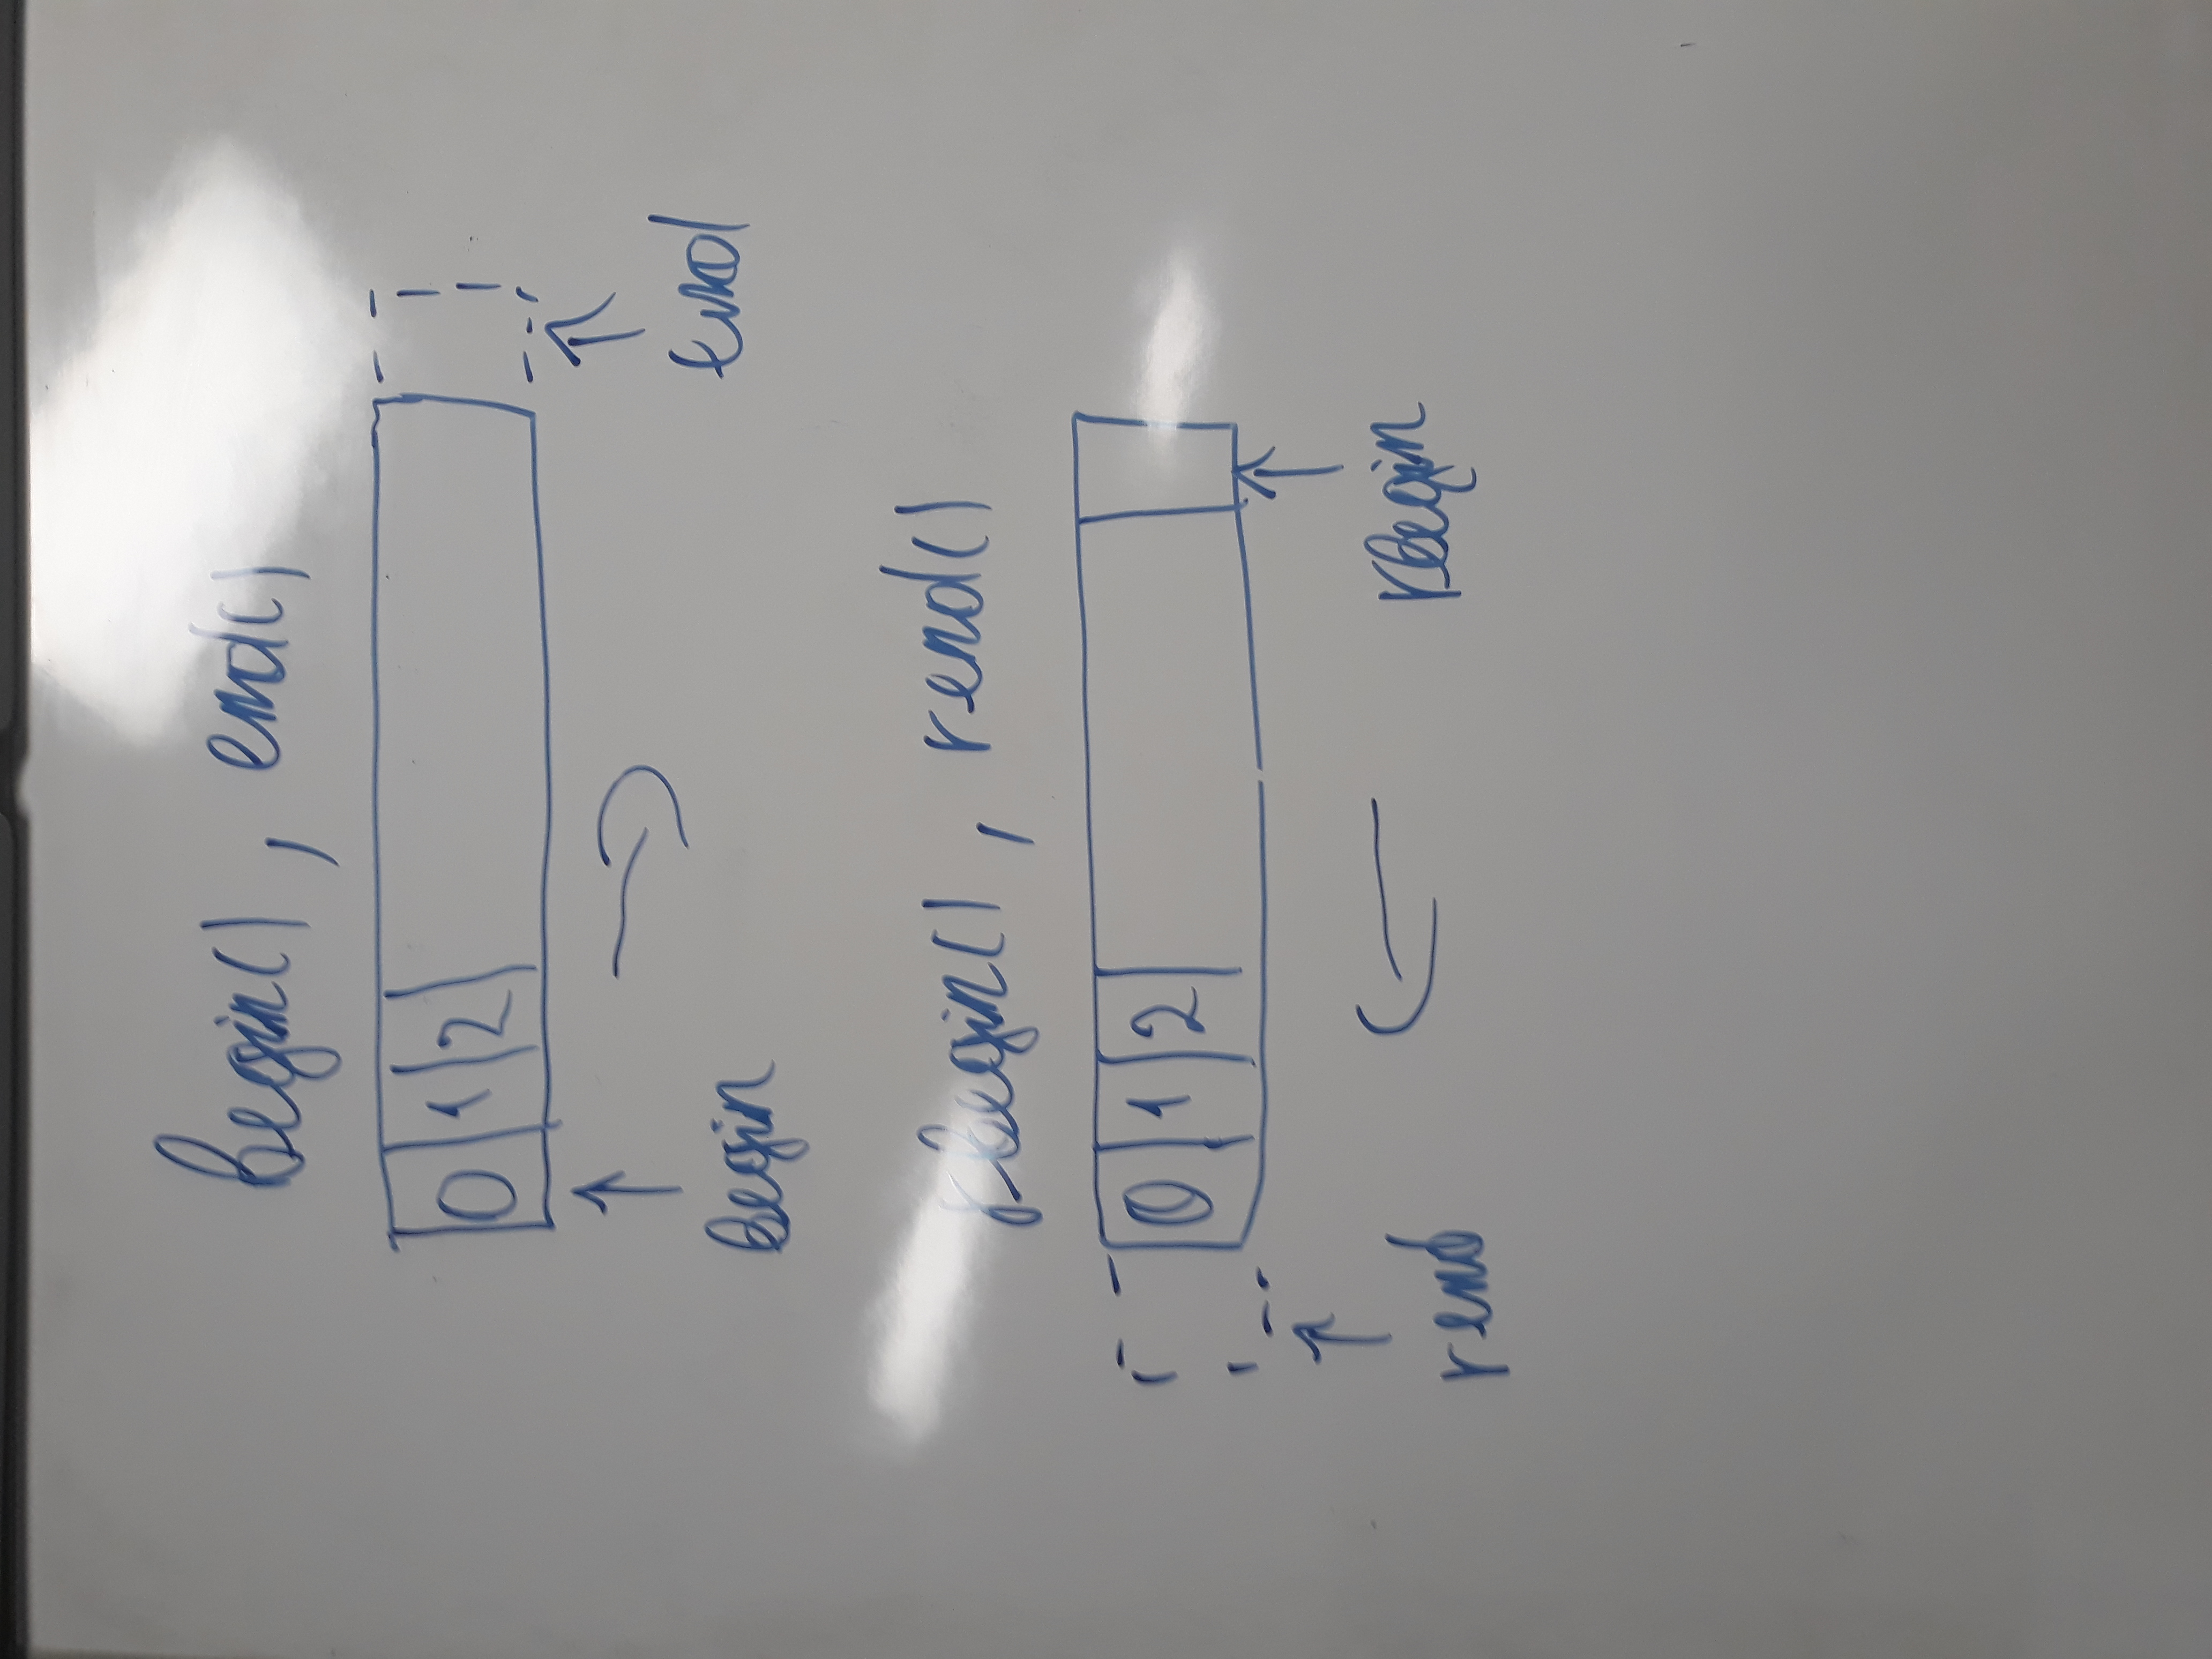 begin(), end()
0 1 2
begin end
rbegin(), rend()
0 1 2
rend rbegin